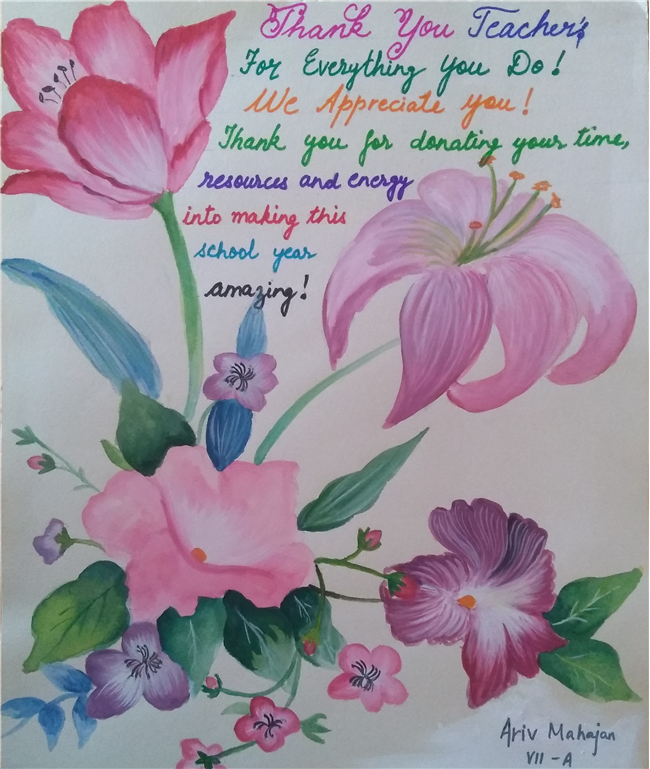 Thank You Teacher's
For Everything You Do!
We Appreciate you!
Thank you for donating your time,
resources and energy
into making this
school year
amazing!
Ariv Mahajan
VII - A